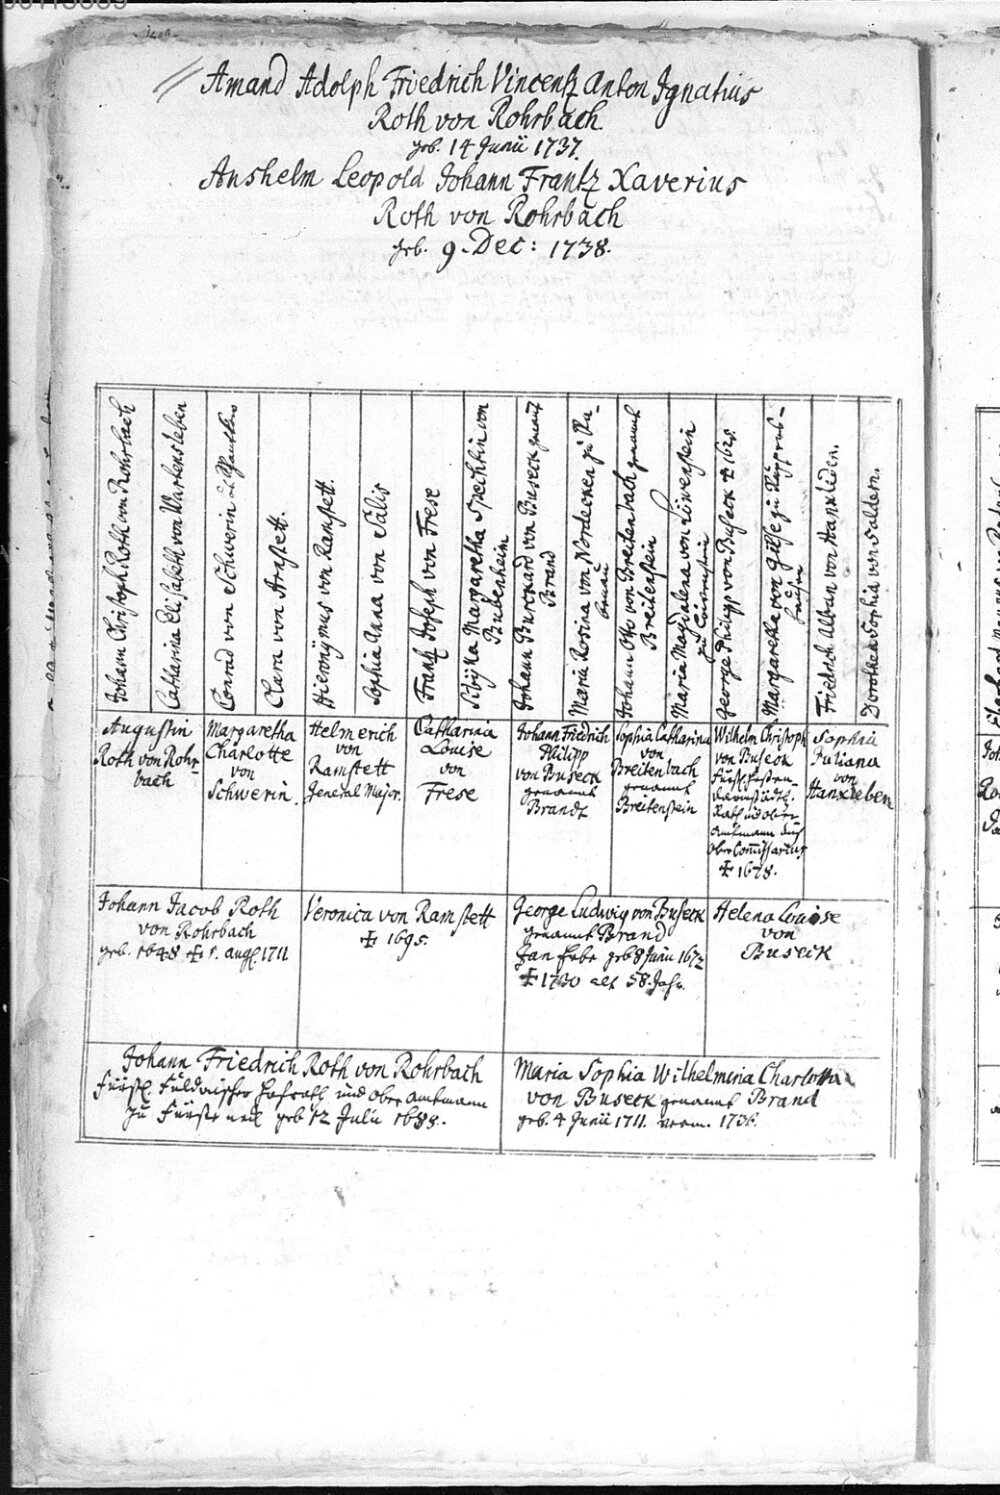 Amand Adolph Friedrich Vincentz Anton Ignatius
Roth von Rohrbach
geb. 14 Junii 1737.
Anshelm Leopold Johann Frantz Xaverius
Roth von Rohrbach
geb. 9. Dec: 1738.
Johann Christoph Roth von Rohrbach
Catharina Elisabeth von Wartensleben
Conrad von Schwerin
Clara von Arnstett.
Hieronÿmus von Ramstett.
Sophia Anna von Salis
Frantz Joseph von Frese
Sibÿlla Margaretha Spechtin von
Bubenheim
Johann Burckard von Buseck genant
Brand
Maria Rosina von Nordecken zu Ra-
benau
Johann Otto von Breitenbach genant
Breitenstein
Maria Magdalena von Löwenstein
zu Löwenstein
George Philipp von Buseck ✝ 1625.
Margaretha von Gilsse zu
Friedrich Alban von Hanxleden.
Dorothea Sophia von Saldern.
Augustin
Roth von Rohr-
bach
Margaretha
Charlotte
von
Schwerin.
Helmerich
von
Ramstett
General Major.
Catharina
Louise
von
Frese
Johann Friedrich
Philipp
von Buseck
genannt
Brandt
Sophia Catharina
von
Breitenbach
genannt
Breitenstein
Wilhelm Christoph
von Buseck
Fürstl. Hessen-
darmstädtl.
Rath und ober-
amtmann auch
ober Com̄issarius
✝ 1678.
Sophia
Juliana
von
Hanxleben
Johann Jacob Roth
von Rohrbach
geb. 1648 ✝ 1. aug. 1711
Veronica von Ramstett
✝ 1695.
George Ludwig von Buseck
genannt Brand
geb 8 Junii 1672
✝ 1730 alt 58. Jahr.
Helena Louise
von
Buseck
Johann Friedrich Roth von Rohrbach
Fürstl. Fuldaischer Hofrath und ober amtmann
zu Fürsteneck geb 12 Julii 1688.
Maria Sophia Wilhelmina Charlotta
von Buseck genannt Brand
geb. 4 Junii 1711. verm. 1736.